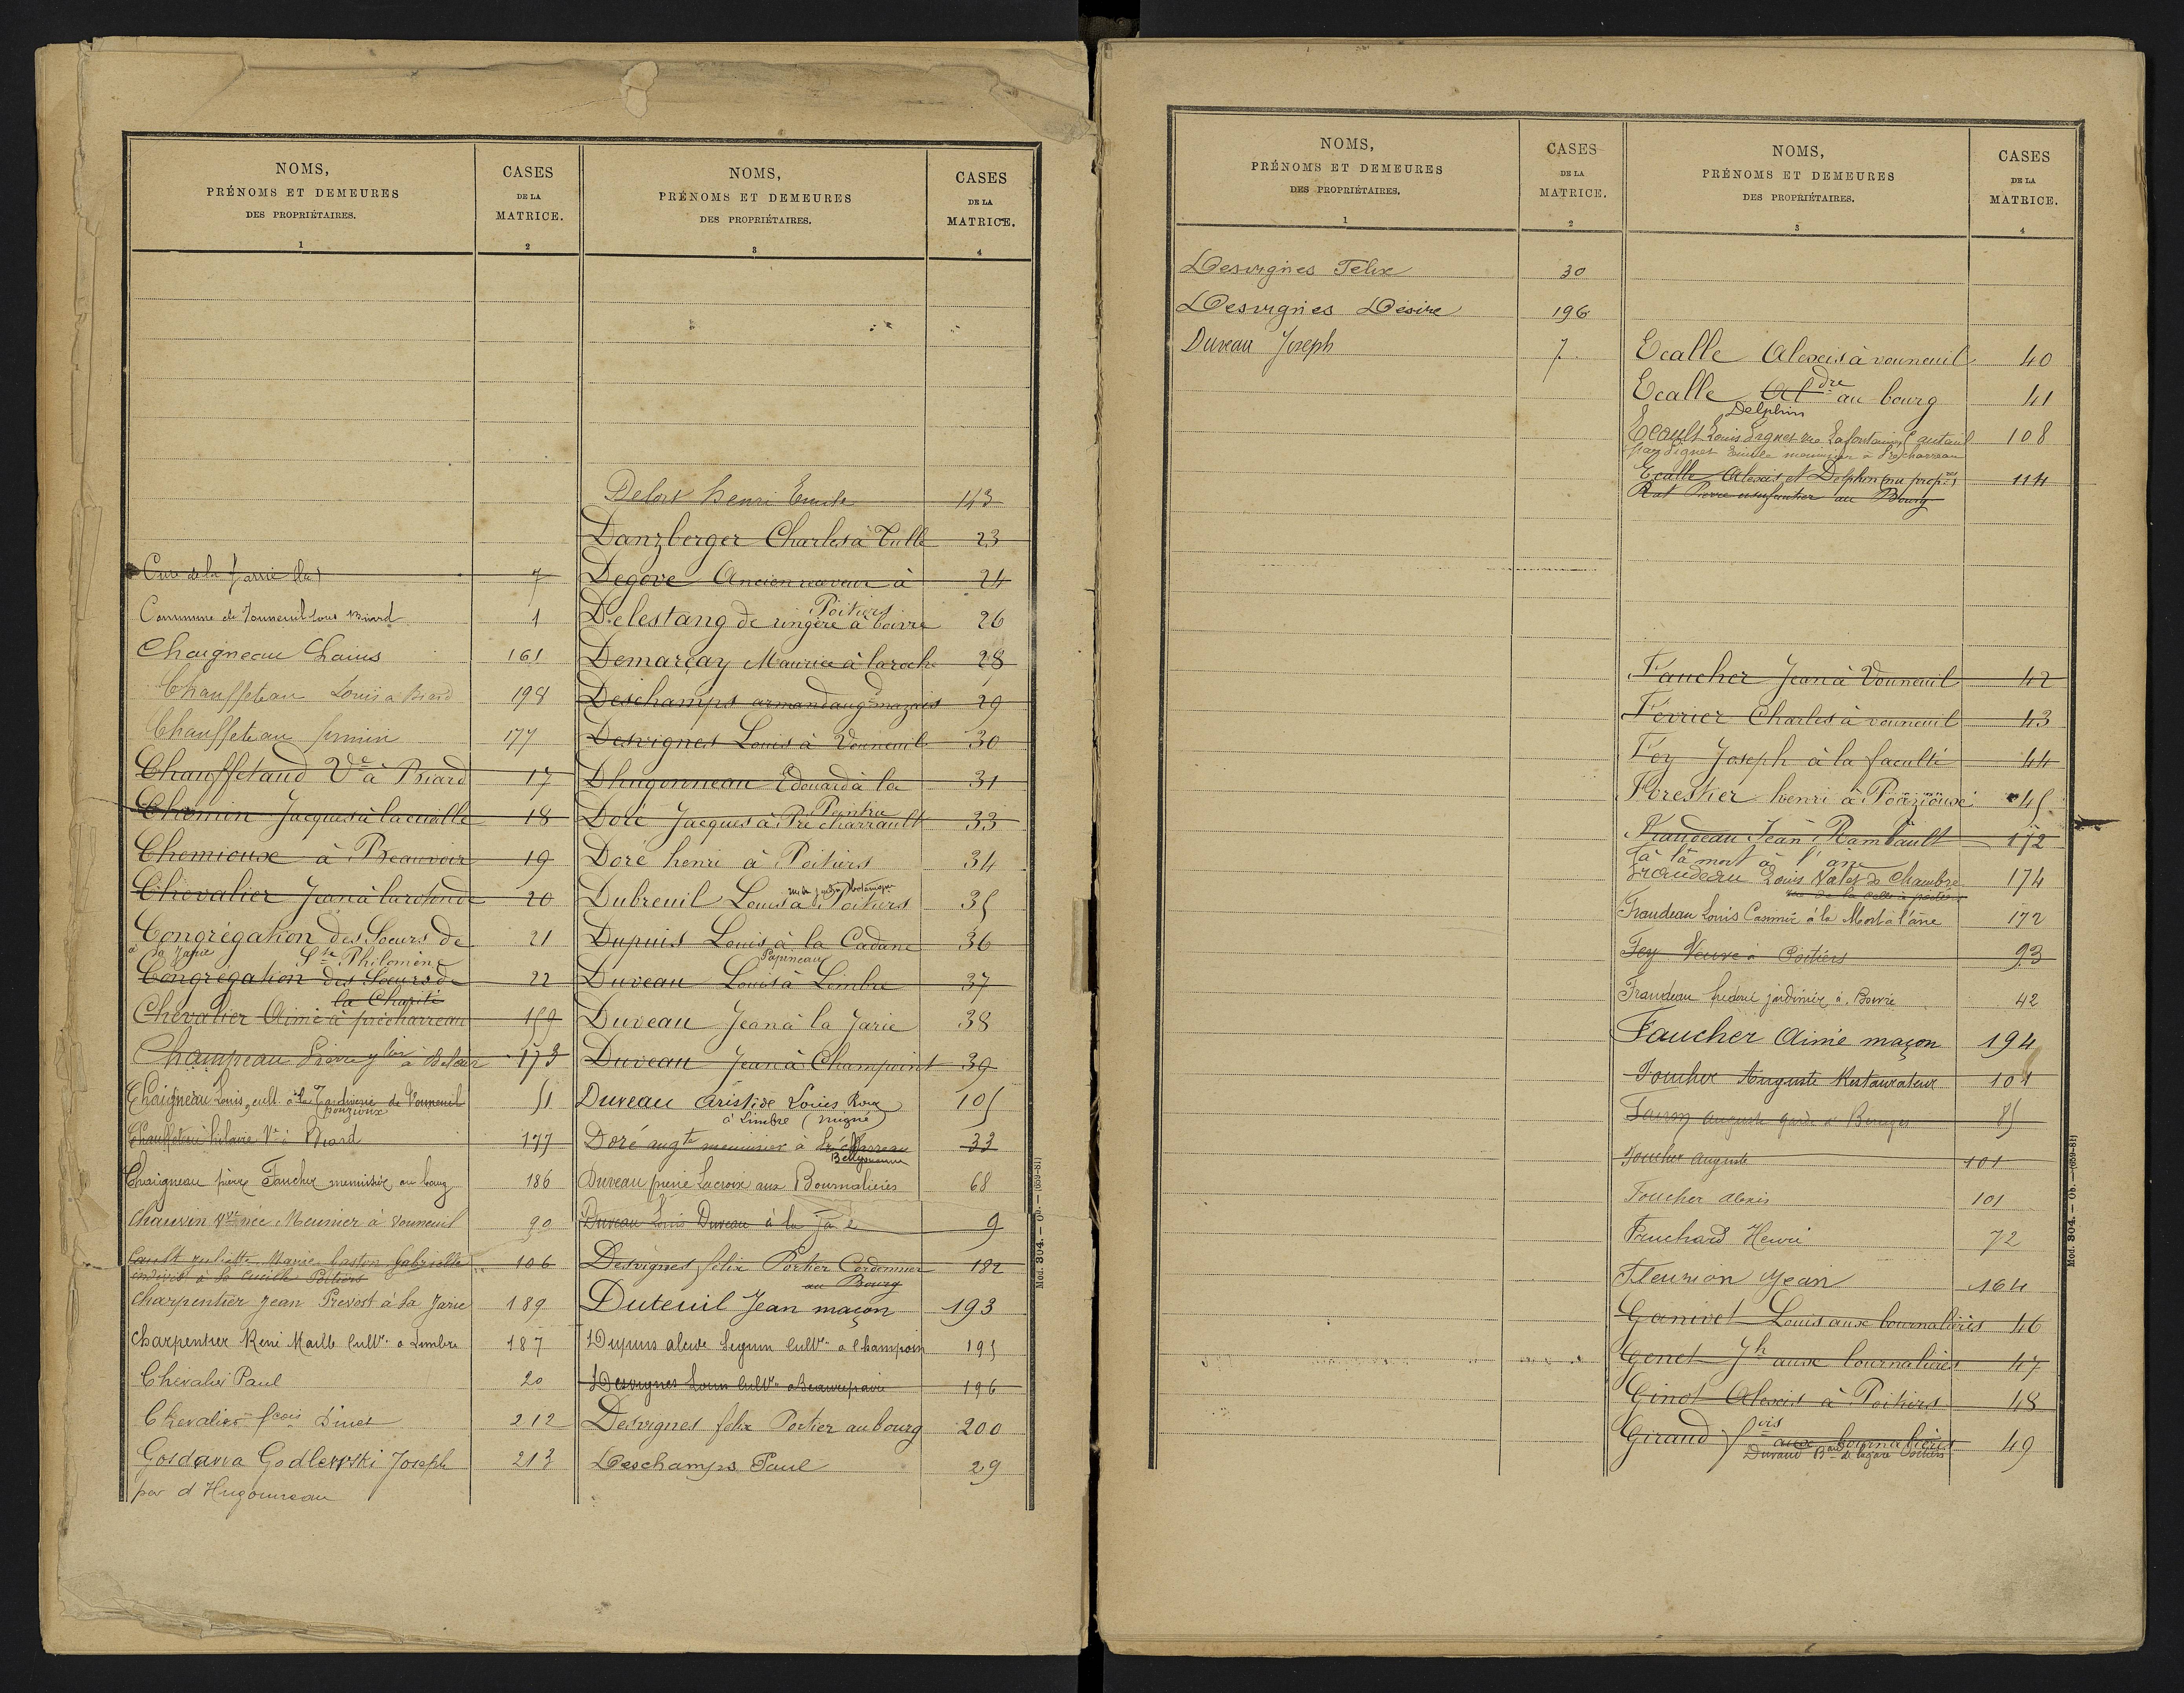 NOMS,
PRÉNOMS ET DEMEURES
DES PROPRIÉTAIRES.
1
CASES
DE LA
MATRICE.
2
Cure de la Jarrie (la) 7
Commune de Vouneuil sous Biard 1
Chaigneau Louis 161
Chauffeteau Louis à Biard 198
Chauffeteau firmin 177
Chauffetaud Ve à Biard 17
Chemin Jacques à la cueille 18
Chemioux à Beauvoir 19
Chevalier Jean à la rotonde 20
Congrégation des Soeurs de 21
à la Japie Ste Philomène
Congrégation des Soeurs de 22
la Charité
Chevalier Aimé à précharreau 159
Champeau Pierre à Belair 173
Chaigneau Louis, cult. à la Jardinerie de Vouneuil 51
pouzioux
Chauffeteau hilaire Ve à Biard 177
Chaigneau pierre Faucher menuisier au bourg 186
Chauvin Vve née Meunier à Vouneuil 90
Cault Juliette Marie Gaston Gabrielle 106
indivis à la Cueille Poitiers
Charpentier Jean Prevost à la Jarie 189
Charpentier René Maillé Cultr. à Limbre 187
Chevalier Paul 20
Chevalier fcois Dinet 212
Gosdawa Godlewski Joseph 213
par d'Hugonneau
NOMS,
PRÉNOMS ET DEMEURES
DES PROPRIÉTAIRES.
3
CASES
DE LA
MATRICE.
4
Delort henri Emile 143
Danzberger Charles à Tulle 23
Degove Ancien receveur à 24
Poitiers
Delestang de ringère à boivre 26
Demarçay Maurice à laroche 28
Deschamps armand augd mazais 29
Desvignes Louis à Vouneuil 30
Dhugonneau Edouard à la 31
Pointrie
Dolé Jacques à Pré charrault 33
Doré henri à Poitiers 34
rue du jardin botanique
Dubreuil Louis à Poitiers 35
Dupuis Louis à la Cadane 36
Papineau
Duveau Louis à Limbre 37
Duveau Jean à la Jarie 38
Duveau Jean à Champoint 39
Duveau Aristide Louis Roux 105
à Limbre (migné)
Doré augte menuisier à Précharreau 33
Duveau pierre Lacroix aux Bournalières 68
Duveau Louis Duveau à la Jarie 9
Desvignes félix Portier Cordonnier 182
au Bourg
Duteuil Jean maçon 193
Dupuis alcide Seguin Cultr. à Champoin 195
Desvignes Louis Cultr. Beaurepaire 196
Desvignes félix Portier au bourg 200
Deschamps Paul 29
Mod. 304. — Ob. — (659-81)
NOMS,
PRÉNOMS ET DEMEURES
DES PROPRIÉTAIRES.
1
CASES
DE LA
MATRICE.
2
Desvignes Félix 30
Desvignes Désiré 196
Duveau Joseph 7
NOMS,
PRÉNOMS ET DEMEURES
DES PROPRIÉTAIRES.
3
CASES
DE LA
MATRICE.
4
Ecalle Alexis à vouneuil 40
Ecalle Aldre au bourg 41
Delphin
Ecault Louis Signet rue Lafontaine auteuil 108
par Signet Emile menuisier à Précharreau
Ecalle Alexis et Delphin propres 114
Rat Pierre au Bourg
Faucher Jean à Vouneuil 42
Ferrier Charles à vouneuil 43
Fey Joseph à la faculté 44
Forestier henri à Pouzioux 45
Fraudeau Jean Rambault 172
à la mort à l'âne
Fraudeau Louis Valet de Chambre 174
rue de la Celle à poitiers
Fraudeau Louis Casimir à la Mort à l'âne 172
Fey Veuve à Poitiers 93
Fraudeau frédéric jardinier à Boivre 42
Faucher Aimé maçon 194
Foucher Auguste Restaurateur 101
Fauron auguste garde à Beruges 85
Foucher Auguste 101
Foucher Alexis 101
Fruchard Henri 72
Fleurion Jean 164
Ganivet Louis aux bournalières 46
Genet Jh aux bournalières 47
Ginot Alexis à Poitiers 48
Giraud fois aux bournalières 49
Durand Bard de la gare Poitiers
Mod. 304. — Ob. — (659-81)